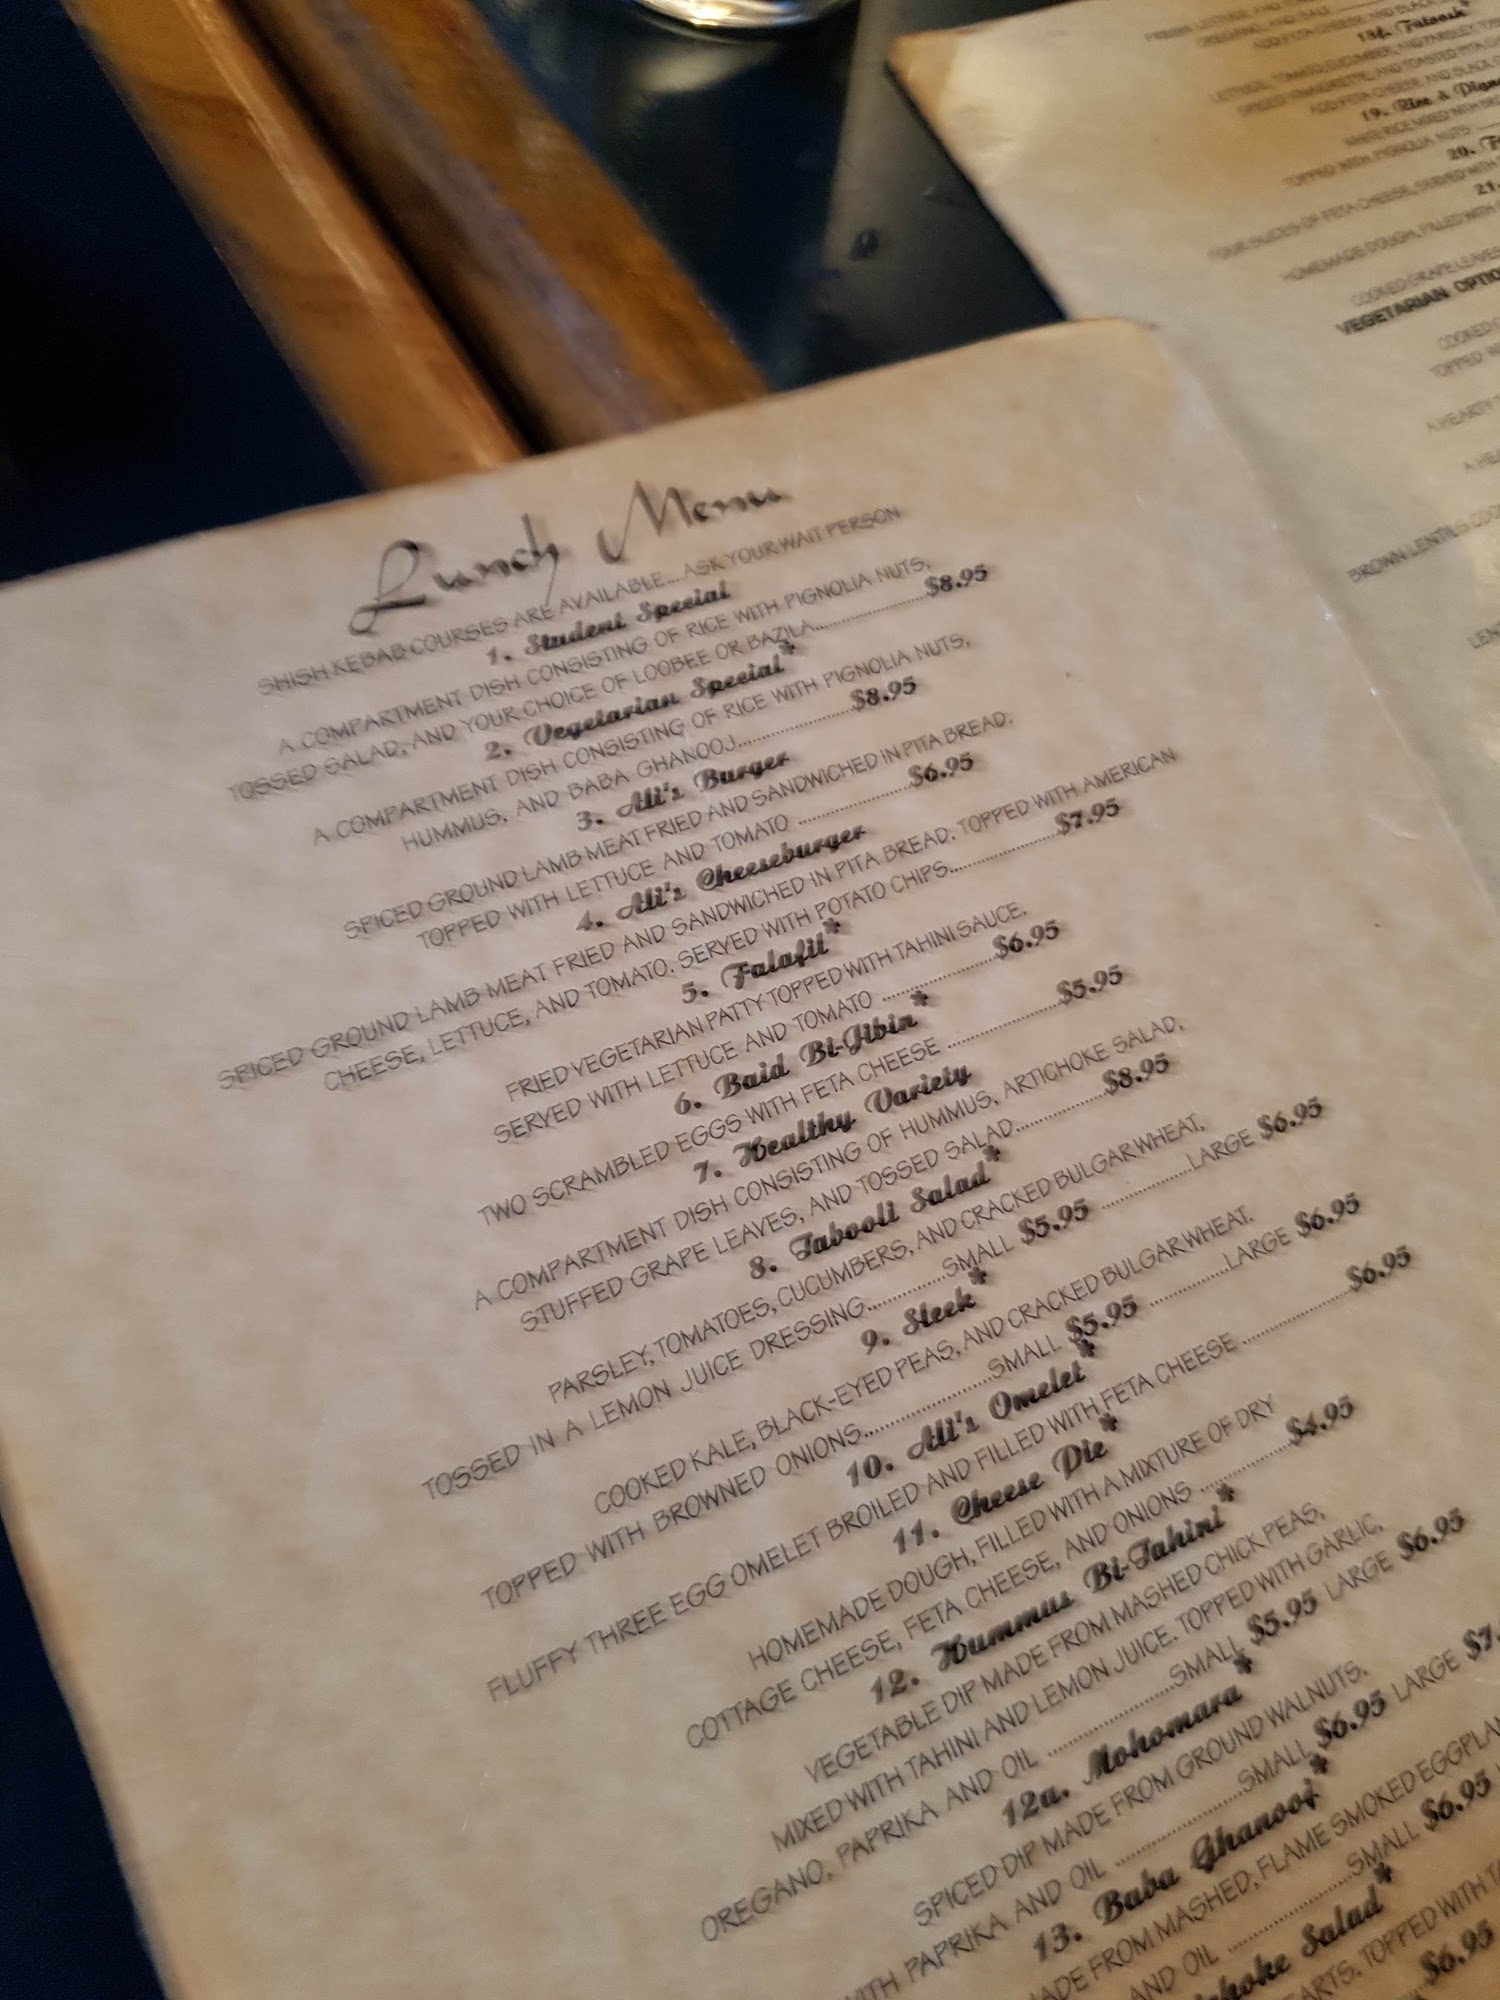 Lunch Menu
SHISH KEBAB COURSES ARE AVAILABLE....ASK YOUR WAIT PERSON
1. Student Special
A COMPARTMENT DISH CONSISTING OF RICE WITH PIGNOLIA NUTS,
TOSSED SALAD, AND YOUR CHOICE OF LOOBEE OR BAZILA....................$8.95
2. Vegetarian Special*
A COMPARTMENT DISH CONSISTING OF RICE WITH PIGNOLIA NUTS,
HUMMUS, AND BABA GHANOOJ....................$8.95
3. Ali's Burger
SPICED GROUND LAMB MEAT FRIED AND SANDWICHED IN PITA BREAD.
TOPPED WITH LETTUCE AND TOMATO ....................$6.95
4. Ali's Cheeseburger
SPICED GROUND LAMB MEAT FRIED AND SANDWICHED IN PITA BREAD. TOPPED WITH AMERICAN
CHEESE, LETTUCE, AND TOMATO. SERVED WITH POTATO CHIPS....................$7.95
5. Falafil*
FRIED VEGETARIAN PATTY TOPPED WITH TAHINI SAUCE.
SERVED WITH LETTUCE AND TOMATO ....................$6.95
6. Baid Bi-Jibin*
TWO SCRAMBLED EGGS WITH FETA CHEESE ....................$5.95
7. Healthy Variety
A COMPARTMENT DISH CONSISTING OF HUMMUS, ARTICHOKE SALAD,
STUFFED GRAPE LEAVES, AND TOSSED SALAD....................$8.95
8. Tabooli Salad*
PARSLEY, TOMATOES, CUCUMBERS, AND CRACKED BULGAR WHEAT,
TOSSED IN A LEMON JUICE DRESSING...............SMALL $5.95 ..................LARGE $6.95
9. Sleek*
COOKED KALE, BLACK-EYED PEAS, AND CRACKED BULGAR WHEAT.
TOPPED WITH BROWNED ONIONS.........................SMALL $5.95 ...............LARGE $6.95
10. Ali's Omelet*
FLUFFY THREE EGG OMELET BROILED AND FILLED WITH FETA CHEESE ....................$6.95
11. Cheese Pie*
HOMEMADE DOUGH, FILLED WITH A MIXTURE OF DRY
COTTAGE CHEESE, FETA CHEESE, AND ONIONS ..................$4.95
12. Hummus Bi-Tahini*
VEGETABLE DIP MADE FROM MASHED CHICK PEAS,
MIXED WITH TAHINI AND LEMON JUICE. TOPPED WITH GARLIC,
OREGANO, PAPRIKA AND OIL .........................SMALL $5.95 LARGE $6.95
12a. Mohomara*
SPICED DIP MADE FROM GROUND WALNUTS.
WITH PAPRIKA AND OIL .........................SMALL $6.95 LARGE $7.
13. Baba Ghanooj*
MADE FROM MASHED, FLAME SMOKED
AND OIL .........................SMALL $6.95
Salad*
TOPPED WITH
$6.95
18f. Fatoosh*
LETTUCE, TOMATO, CUCUMBER, AND PARSLEY
19. Rice &
TOPPED WITH PIGNOLIA NUTS
20.
FOUR SLICES OF FETA CHEESE, SERVED WITH
21.
HOMEMADE DOUGH, FILLED WITH
COOKED GRAPE LEAVES
VEGETARIAN
COOKED
TOPPED
A HEARTY
BROWN LENTILS